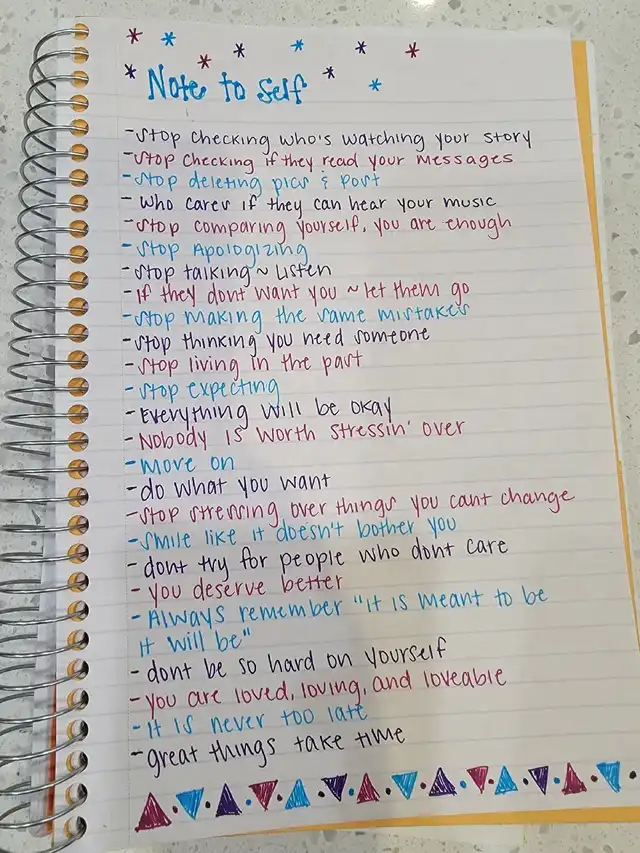 Note to self
-Stop checking who's watching your story
-Stop checking if they read your messages
-Stop deleting pics & post
- Who cares if they can hear your music
-Stop comparing yourself, you are enough
-Stop Apologizing
-Stop talking ~ Listen
-If they dont want you ~ let them go
-Stop making the same mistakes
-Stop thinking you need someone
-Stop living in the past
-Stop expecting
-Everything will be okay
-Nobody is worth stressin' over
-Move on
-do what you want
-Stop stressing over things you cant change
-Smile like it doesn't bother you
- dont try for people who dont care
- you deserve better
- Always remember "it is meant to be
it will be"
- dont be so hard on yourself
-you are loved, loving, and loveable
-it is never too late
-great things take time